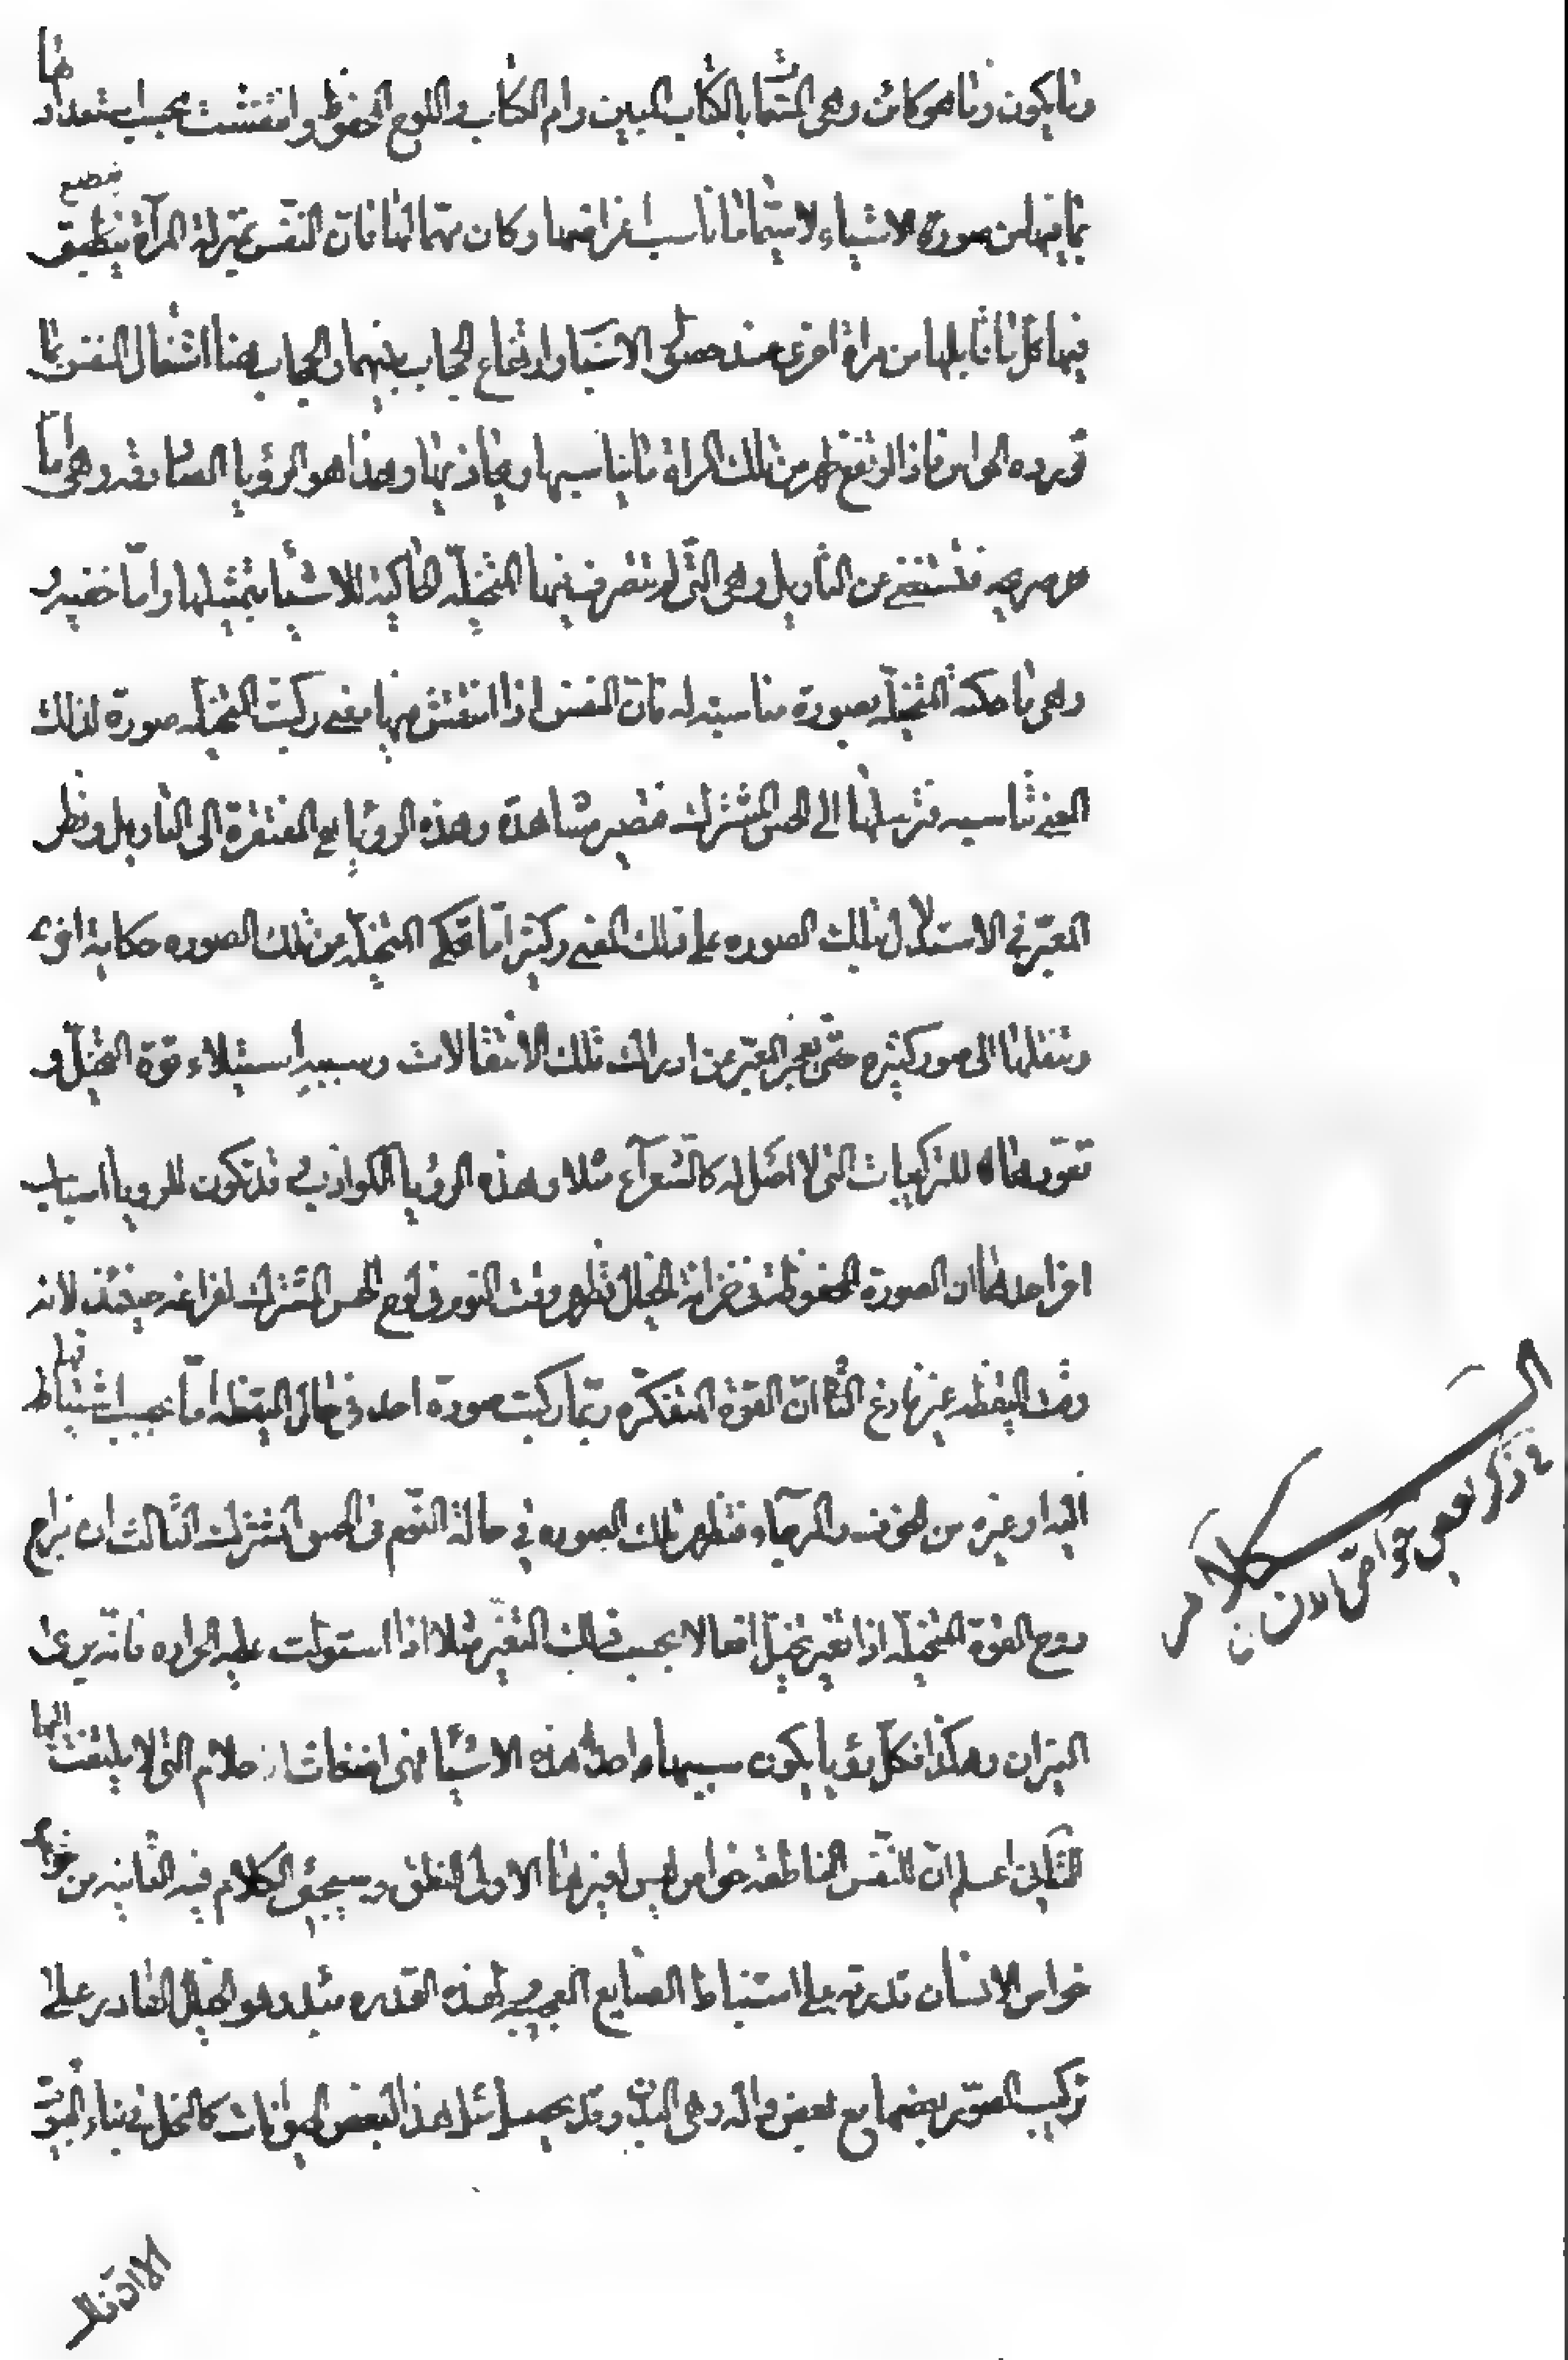 وما يكون وما هو كائن وهى المسماة بالكتاب المبين وام الكتاب واللوح المحفوظ وانتقشت بحسب استعدادها
بما فيها من صورة الاشياء لا سيما ما ناسب اغراضها وكان مهما لها فان النفس بمنزلة المرآة ينطبع
فيها كل ما قابلها من مراة اخرى عند حصول الاسباب وارتفاع الحجاب بينهما والحجاب هنا اشتغال النفس بما
تورده الحواس فاذا ارتفع ظهر من تلك المراة ما يناسبها ويحاذيها وهذا هو الرؤيا الصادقه وهى اما
صريحه فتستغنى عن التاويل وهى التى لم يتصرف فيها المتخيلة الحاكية للاشيا بتمثيلها واما خفيه و
وهى ما حكته المتخيلة بصورة مناسبته له فان النفس اذا انتقش فيها معنى ركبت المتخيله صورة لذلك
المعنى تناسبه فترسلها الى الحس المشترك فتصير مشاهدة وهذه الرويا هى المفتقرة الى التاويل ونظر
المعبر فى الاستدلال بتلك الصوره على ذلك المعنى وكثيرا ما تحكى المتخيلة من تلك الصوره حكاية اخرى
وتنقلها الى صور كثيره حتى يعجز المعبر عن ادراك تلك الانتقالات وسببه استيلاء قوة التخيل و
تعودها للتركيبات التى لا اصل له كالشعرآء مثلا وهذه الرؤيا الكواذب قد تكون للرويا اسباب
اخر احدها ان الصورة المحفوظة فى خزانة الخيال تظهر وقت النوم فى لوح الحس المشترك لفراغه حينئذ لانه
وقت اليقظه غير فارغ الثانى ان القوة المتفكره ربما ركبت صورة احد فى حال اليقظه اما بحسب اشتياط
اليه او غيره من الخوف والرجاء فتظهر تلك الصوره فى حالة النوم فى الحس المشترك الثالث ان مزاج
روح القوة المتخيله اذا تغير تخيل افعالا بحسب ذلك التغير مثلا اذا استولت عليه الحراره فانه يرى
النيران وهكذا فكل رؤيا يكون سببها واحد هذه الاشيا فهى اضغاث احلام التى لا يلتفت اليها
اعلم ان للنفس الناطقه خواص ليس لغيرها الاولى النطق وسيجئ الكلام فيه الثانيه من خواص
خواص الانسان قدرته على استنباط الصنايع العجيبه لهذه القدره مبدء وهو الخيال القادر على
تركيب الصور بعضها مع بعض واله وهى اليد وقد يحصل مثل هذا لبعض الحيوانات كالنحل فى بناء البيوت
الكلام
فى ذكر بعض خواص الانسان